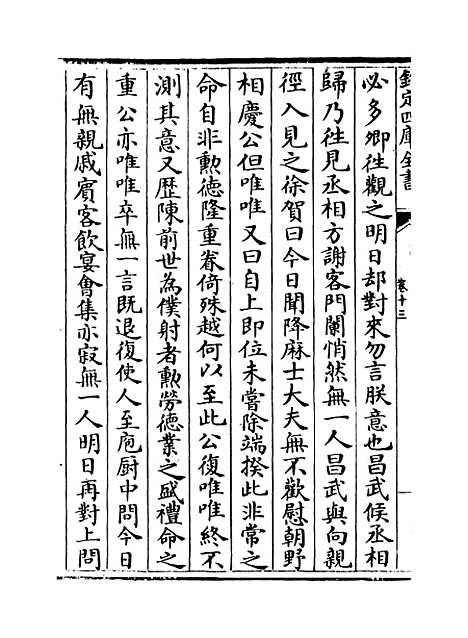 欽定四庫全書
卷十三
必多卿徃觀之明日却對來勿言朕意也昌武候丞相
歸乃徃見丞相方謝客門闌悄然無一人昌武與向親
徑入見之徐賀曰今日聞降麻士大夫無不歡慰朝野
相慶公但唯唯又曰自上即位未嘗除端揆此非常之
命自非勲德隆重眷倚殊越何以至此公復唯唯終不
測其意又歴陳前世為僕射者勲勞德業之盛禮命之
重公亦唯唯卒無一言既退復使人至庖厨中問今日
有無親戚賔客飲宴會集亦寂無一人明日再對上問